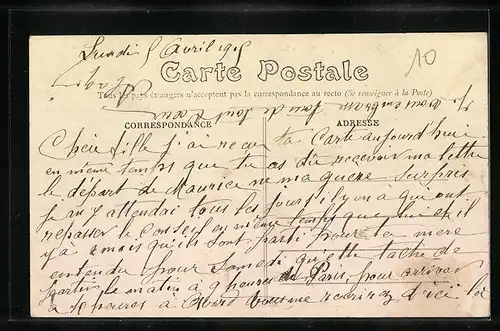 Lundi 5 Avril 1915
10
Carte Postale
Tous les pays étrangers n'acceptent pas la correspondance au recto (Se renseigner à la Poste)
CORRESPONDANCE
ADRESSE
Chère fille j'ai reçu ta Carte aujourd'hui
en même temps que tu as dû recevoir ma lettre
le départ de Maurice ne ma guère surpris
je m'y attendai tous les jours il y en a que ont
repasser le Conseil en même temps que lui et il
y a 2 mois qu'ils sont parti pour la mère
entendu pour Samedi tache de
partir le matin à 9 heures de Paris, pour arriver
à heures à vous me d'ici là
Je vous embrasse tous de tout cœur